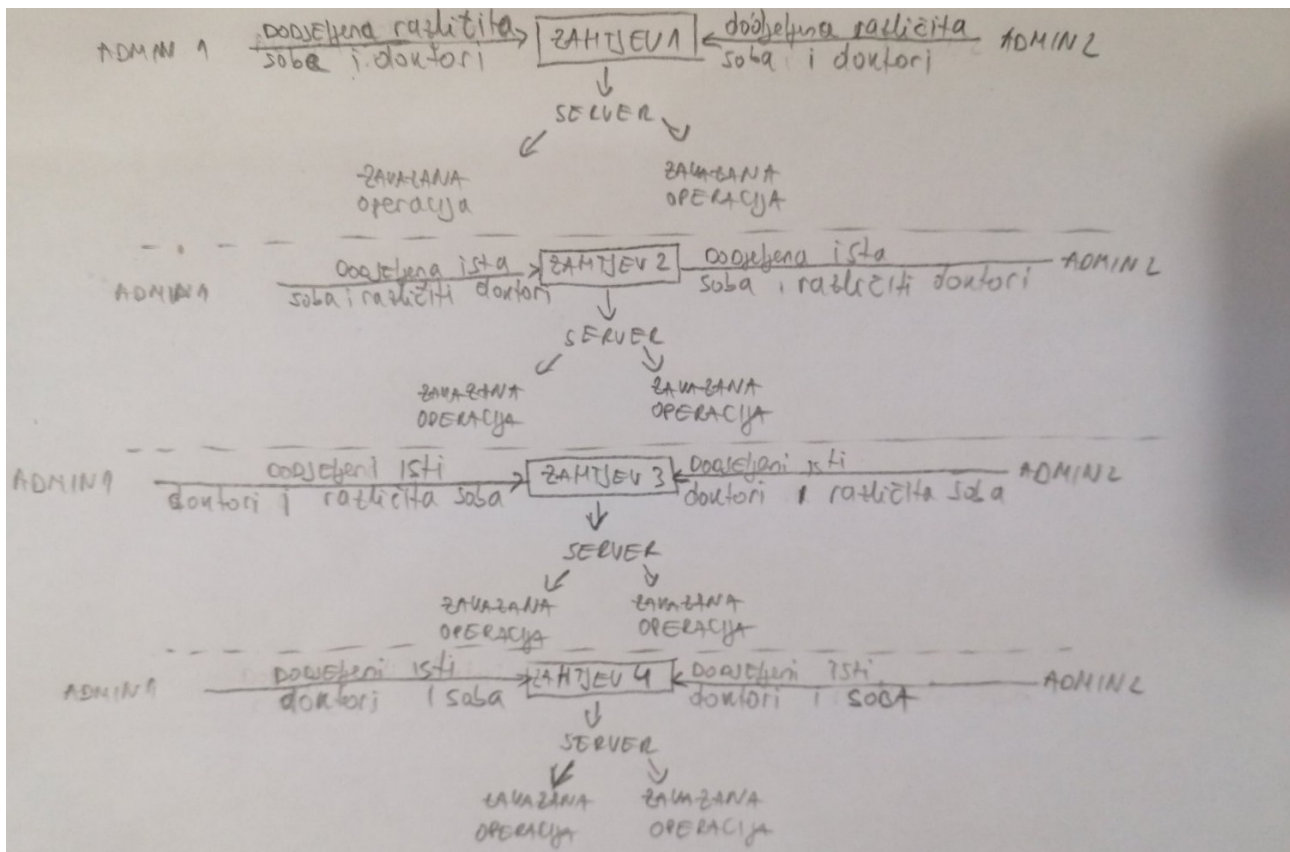 ADMIN 1 DODJELJENA različita soba i doktori ZAHTJEV 1 dodjeljena različita soba i doktori ADMIN 2
SERVER
ZAKAZANA operacija
ZAKAZANA OPERACIJA
ADMIN 1 Dodjeljena ista soba i različiti doktori ZAHTJEV 2 Dodjeljena ista soba i različiti doktori ADMIN 2
SERVER
ZAKAZANA OPERACIJA
ZAKAZANA OPERACIJA
ADMIN 1 DODJELJENI ISTI doktori i različita soba ZAHTJEV 3 Dodjeljeni isti doktori i različita soba ADMIN 2
SERVER
ZAKAZANA OPERACIJA
ZAKAZANA OPERACIJA
ADMIN 1 Dodjeljeni isti doktori i soba ZAHTJEV 4 Dodjeljeni isti doktori i SOBA ADMIN 2
SERVER
ZAKAZANA OPERACIJA
ZAKAZANA OPERACIJA